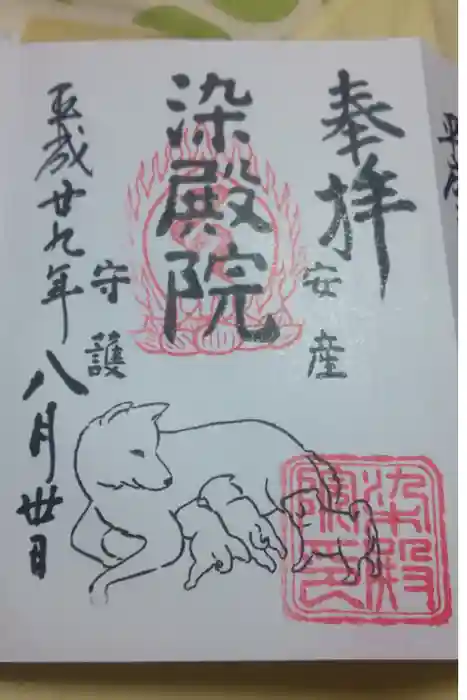 奉拝
安産
染殿院
守護
平成廿九年八月卅日
染殿
院印